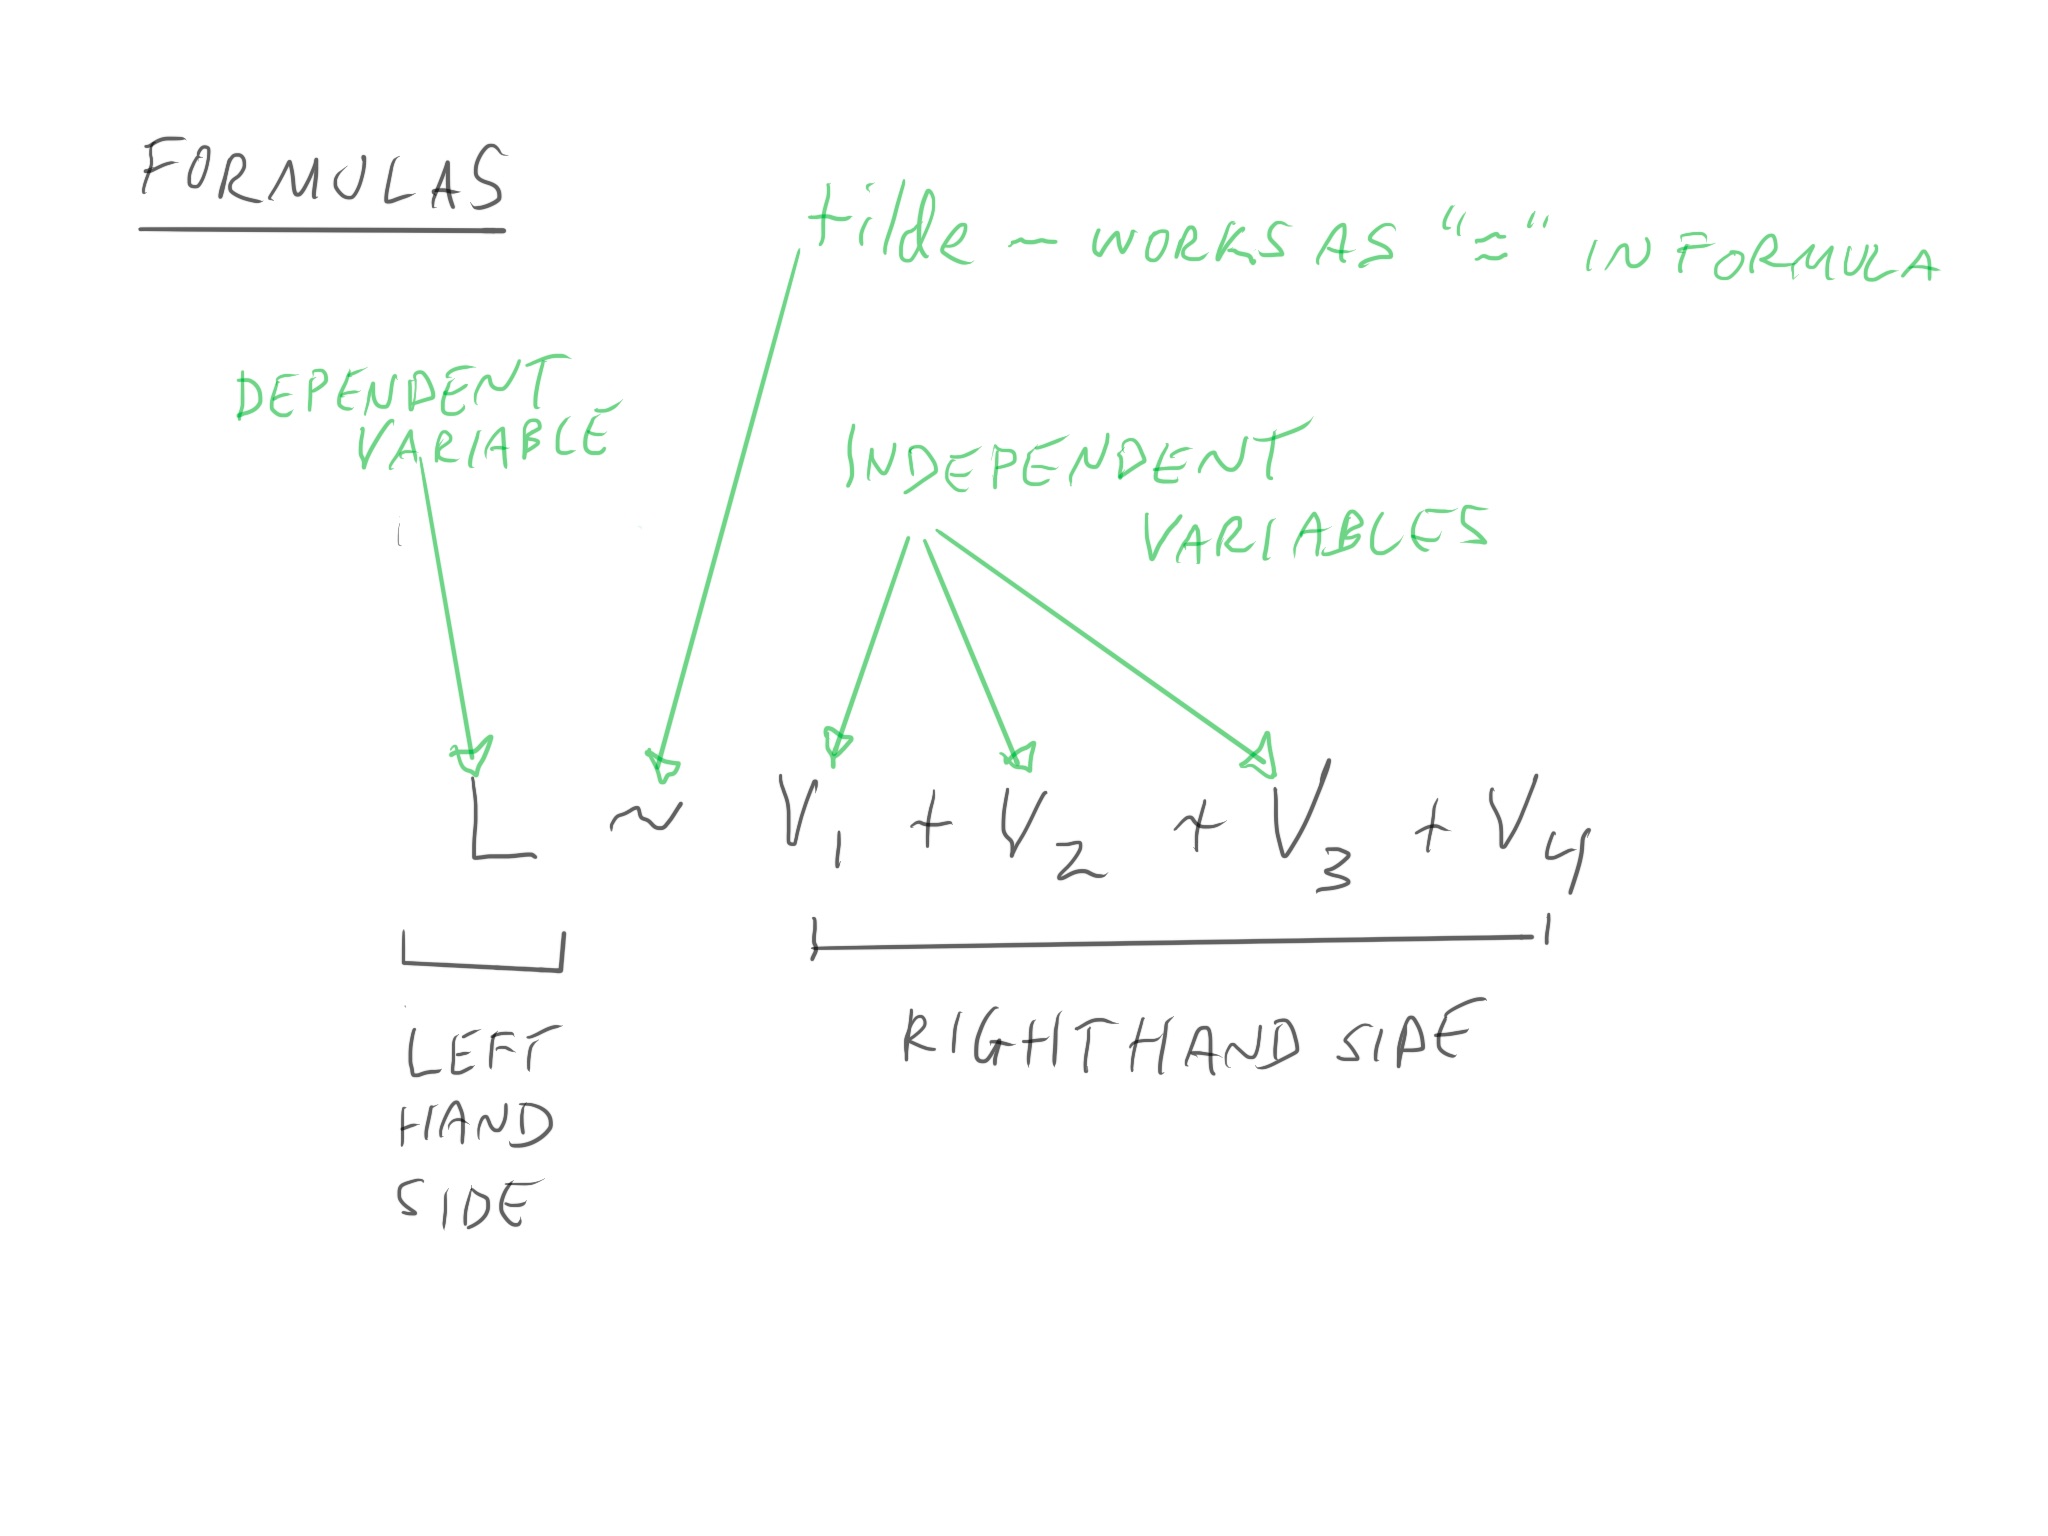 FORMULAS
tilde – WORKS AS "≈" IN FORMULA
DEPENDENT
VARIABLE
INDEPENDENT
VARIABLES
L ~ V₁ + V₂ + V₃ + V₄
LEFT
HAND
SIDE
RIGHT HAND SIDE